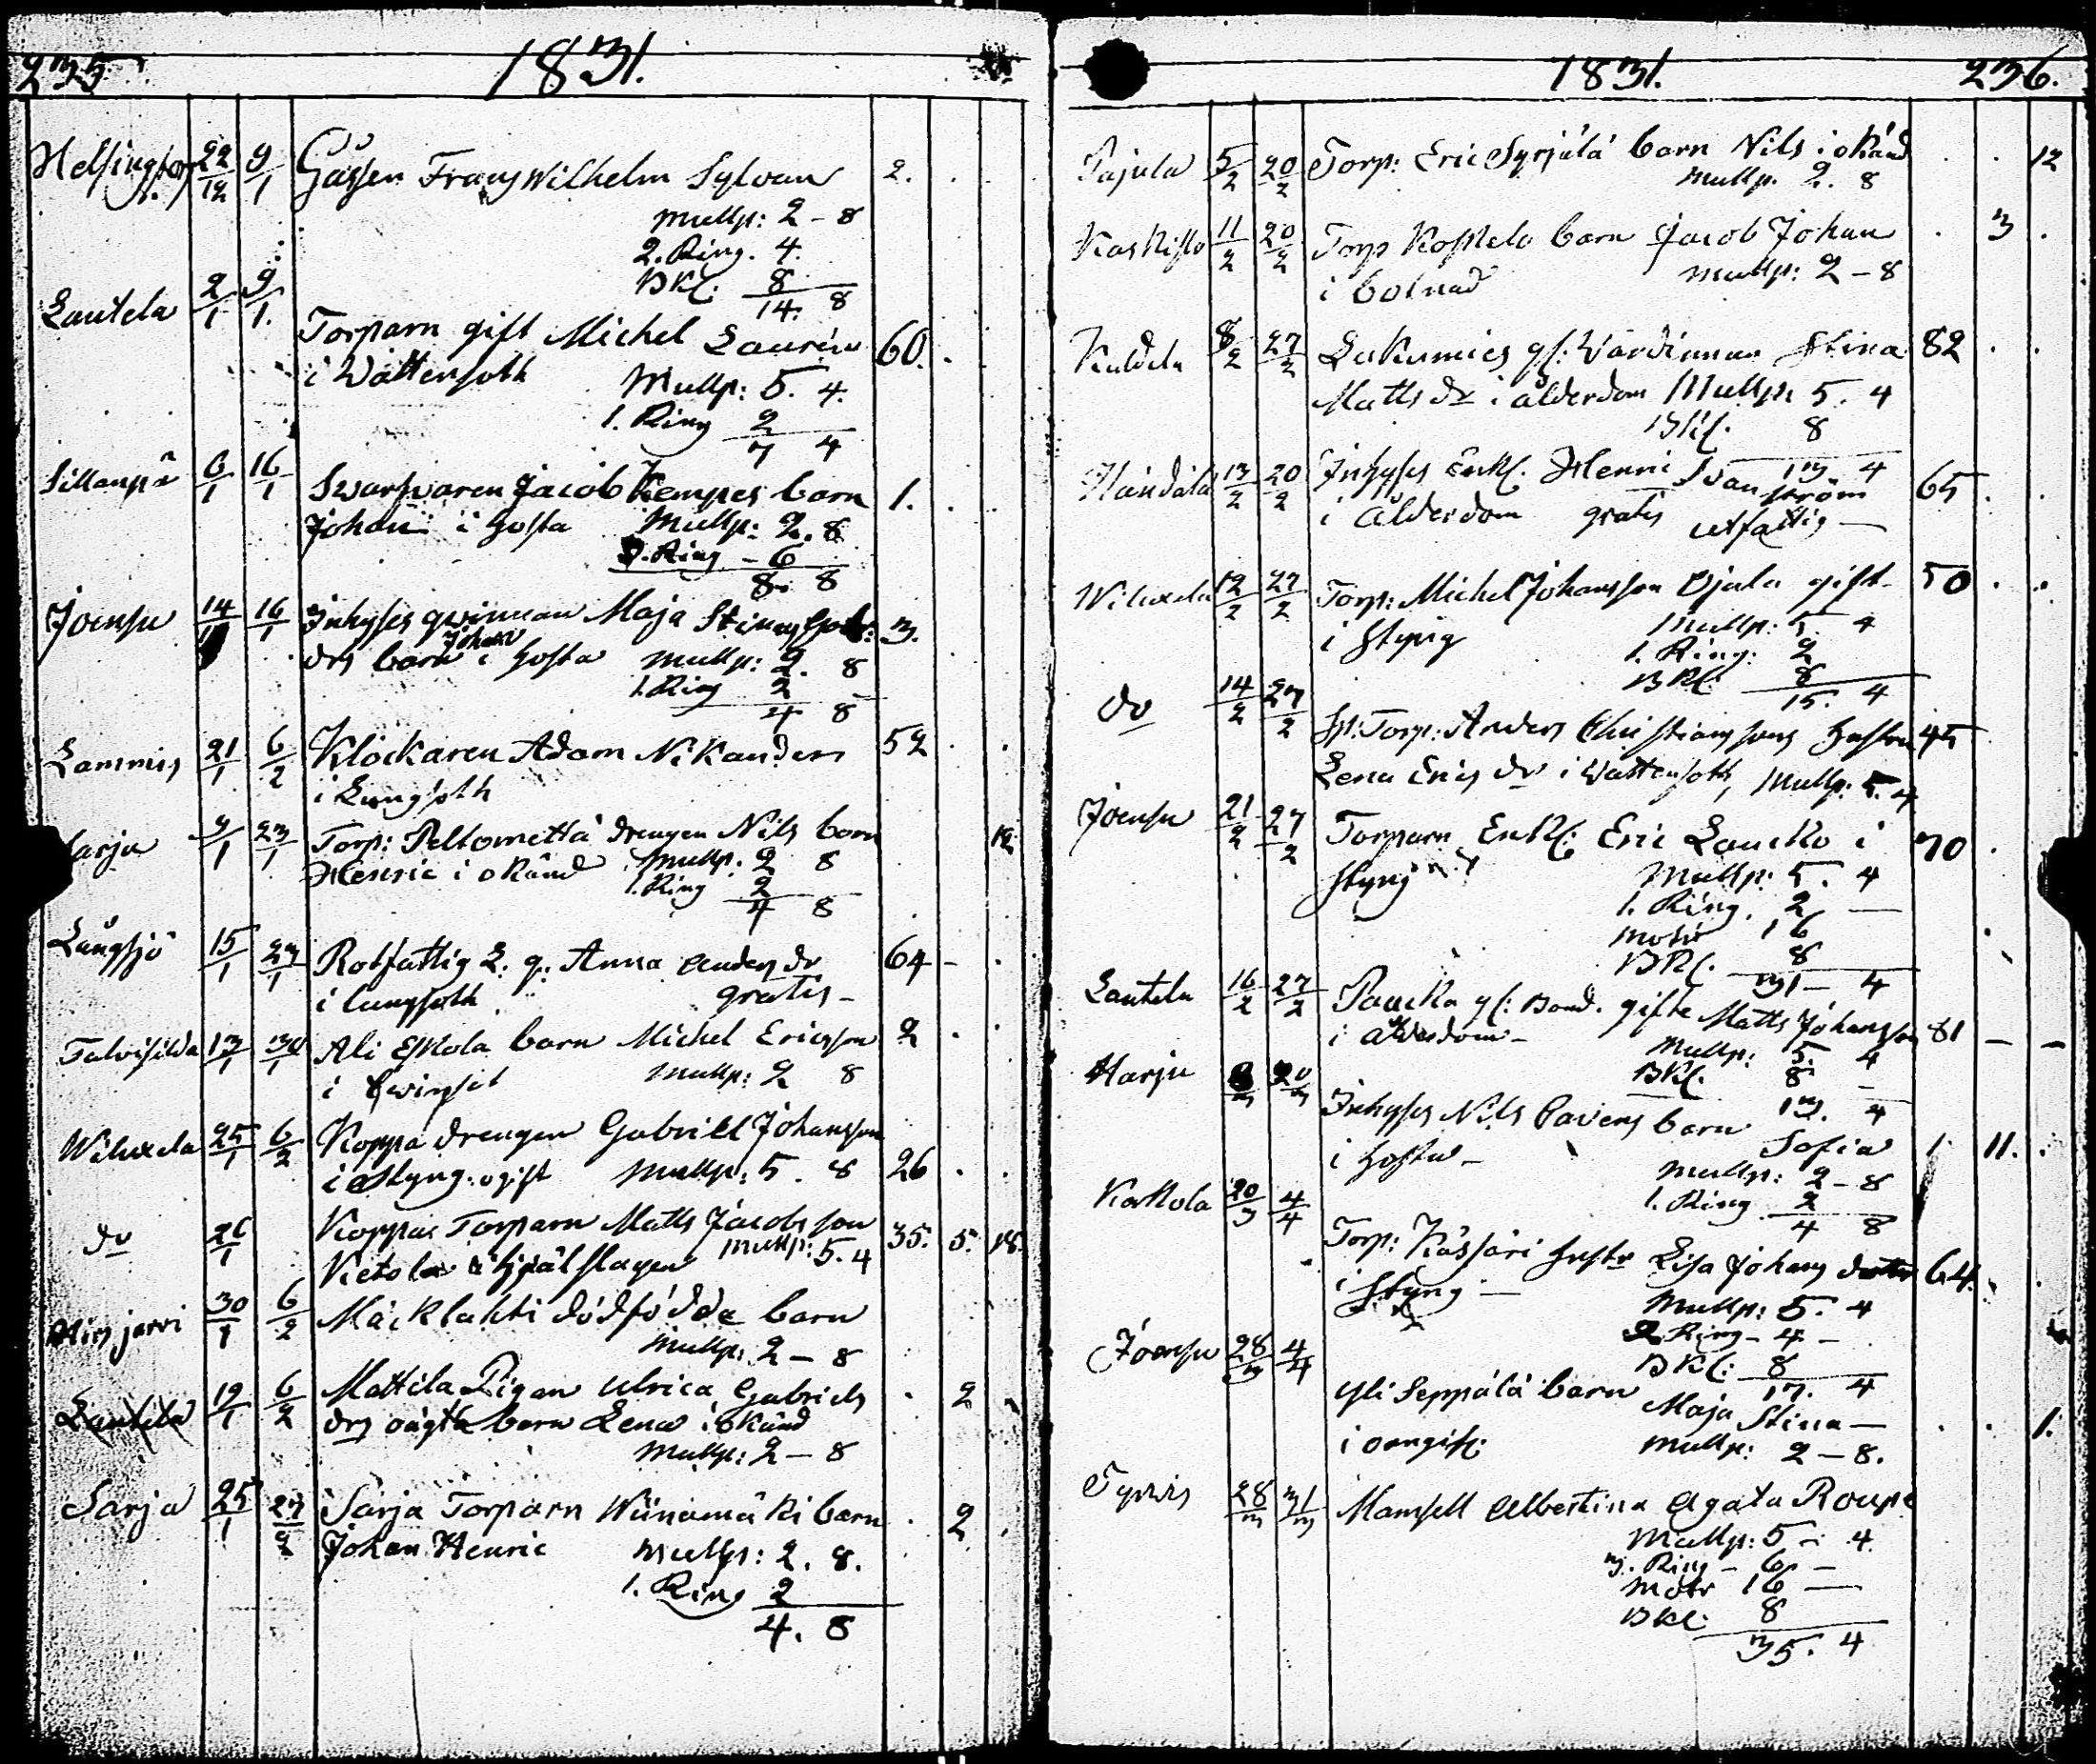 235 1831.
Helsingfors 22/12 9/1 Gossen Frans Wilhelm Sylvan 2.
Mullp: 2 – 8
2. Ring. 4.
BKl: 8
14. 8
Lautela 2/1 9/1. Torparn gift Michel Laurén 60.
i Wattensoth Mullp: 5. 4.
1. Ring 2
7 4
Sillanpä 6/1 16/1 Swarfvaren Jacob Kempes barn 1.
Johan i hosta Mullp: 2. 8
3. Ring – 6
8. 8
Joensu 14/1 16/1 Inhyses qwinnan Maja Stinas Gabr: 3.
drs barn Johan i hosta Mullp: 2. 8
1. Ring 2
4 8
Lammis 21/1 6/2 Klockaren Adam Nikander 52
i Lungsoth
Sarja 9/1 23/1 Torp: Peltomettä drengen Nils barn 12
Henric i okänd Mullp. 2 8
1. Ring 2
4 8
Långsjö 15/1 23/1 Rotfattig E. q. Anna Anders dr 64 –
i lungsoth gratis –
Talvisilda 13/1 30/1 Ali Eskola barn Michel Ericsson 2
i Mullp: 2 8
Wiluxela 25/1 6/2 Koppa drengen Gabriel Johansson
i Styng. ogift Mullp: 5. 8 26
do 26/1 Koppas Torparn Matts Jacobsson 35. 5. 18.
Ketola ihjälslagen Mullp: 5. 4
Hirsjärvi 30/1 6/2 Mäcklahti dödfödde barn
Mullp. 2 – 8
Lautela 19/1 6/2 Mattila Pigan Ulrica Gabriels 2
drs oägta barn Lena i okänd
Mullp: 2 – 8
Sarja 25/1 27/2 Sarja Torparn Wiinamäki barn 2
Johan Henric Mullp: 2. 8.
1. Ring 2
4. 8
1831. 236.
Pajula 5/2 20/2 Torp: Eric Syrjälä barn Nils i okänd 12
Mullp. 2. 8
Kaskisto 11/2 20/2 Torp Koskela barn Jacob Johan 3
i bolnad Mullp: 2 – 8
Kuldela 8/2 27/2 gl: Wärdinnan Stina 82
Matts dr i ålderdom Mullp: 5. 4
BKl. 8
13 4
Händälä 13/2 20/2 Inhyses Enkl. Henric Svanström 65
i ålderdom gratis utfattig –
Wiluxela 12/2 27/2 Torp: Michel Johansson Ojala gift 50
i Styng Mullp: 5. 4
1. Ring: 2
BKl: 8
15. 4
do 14/2 27/2 Sp: Torp: Anders Christianssons hustru 45
Lena Erics dr i Wattensoth, Mullp: 5. 4
Joensu 21/2 27/2 Torparn Enkl: Eric Laucko i 70
Styng Mullp: 5. 4
1. Ring. 2 –
Motr 16
BKl. 8
31 – 4
Lautela 16/2 27/2 Paucka gl: Bond. gifte Matts Johansson 81 – –
i ålderdom – Mullp: 5. 4
BKl. 8 –
13. 4
Harju 8/3 20/3 Inhyses Nils Pavers barn
i hosta – Sofia 1 11.
Mullp: 2 – 8
1. Ring 2
4 8
Kokkola 20/3 4/4 Torp: Kässäri hustr Lisa Johans dotter 64.
i Styng – Mullp: 5. 4
2 Ring – 4 –
BKl: 8
17. 4
Joensu 28/3 4/4 Yli Seppälä barn Maja Stina – 1.
i oangifl: Mullp: 2 – 8.
Tyrvis 28/3 31/3 Mamsell Albertina Agata Roupe
Mullp: 5 – 4
3. Ring – 6 –
Motr 16 –
BKl: 8
35. 4